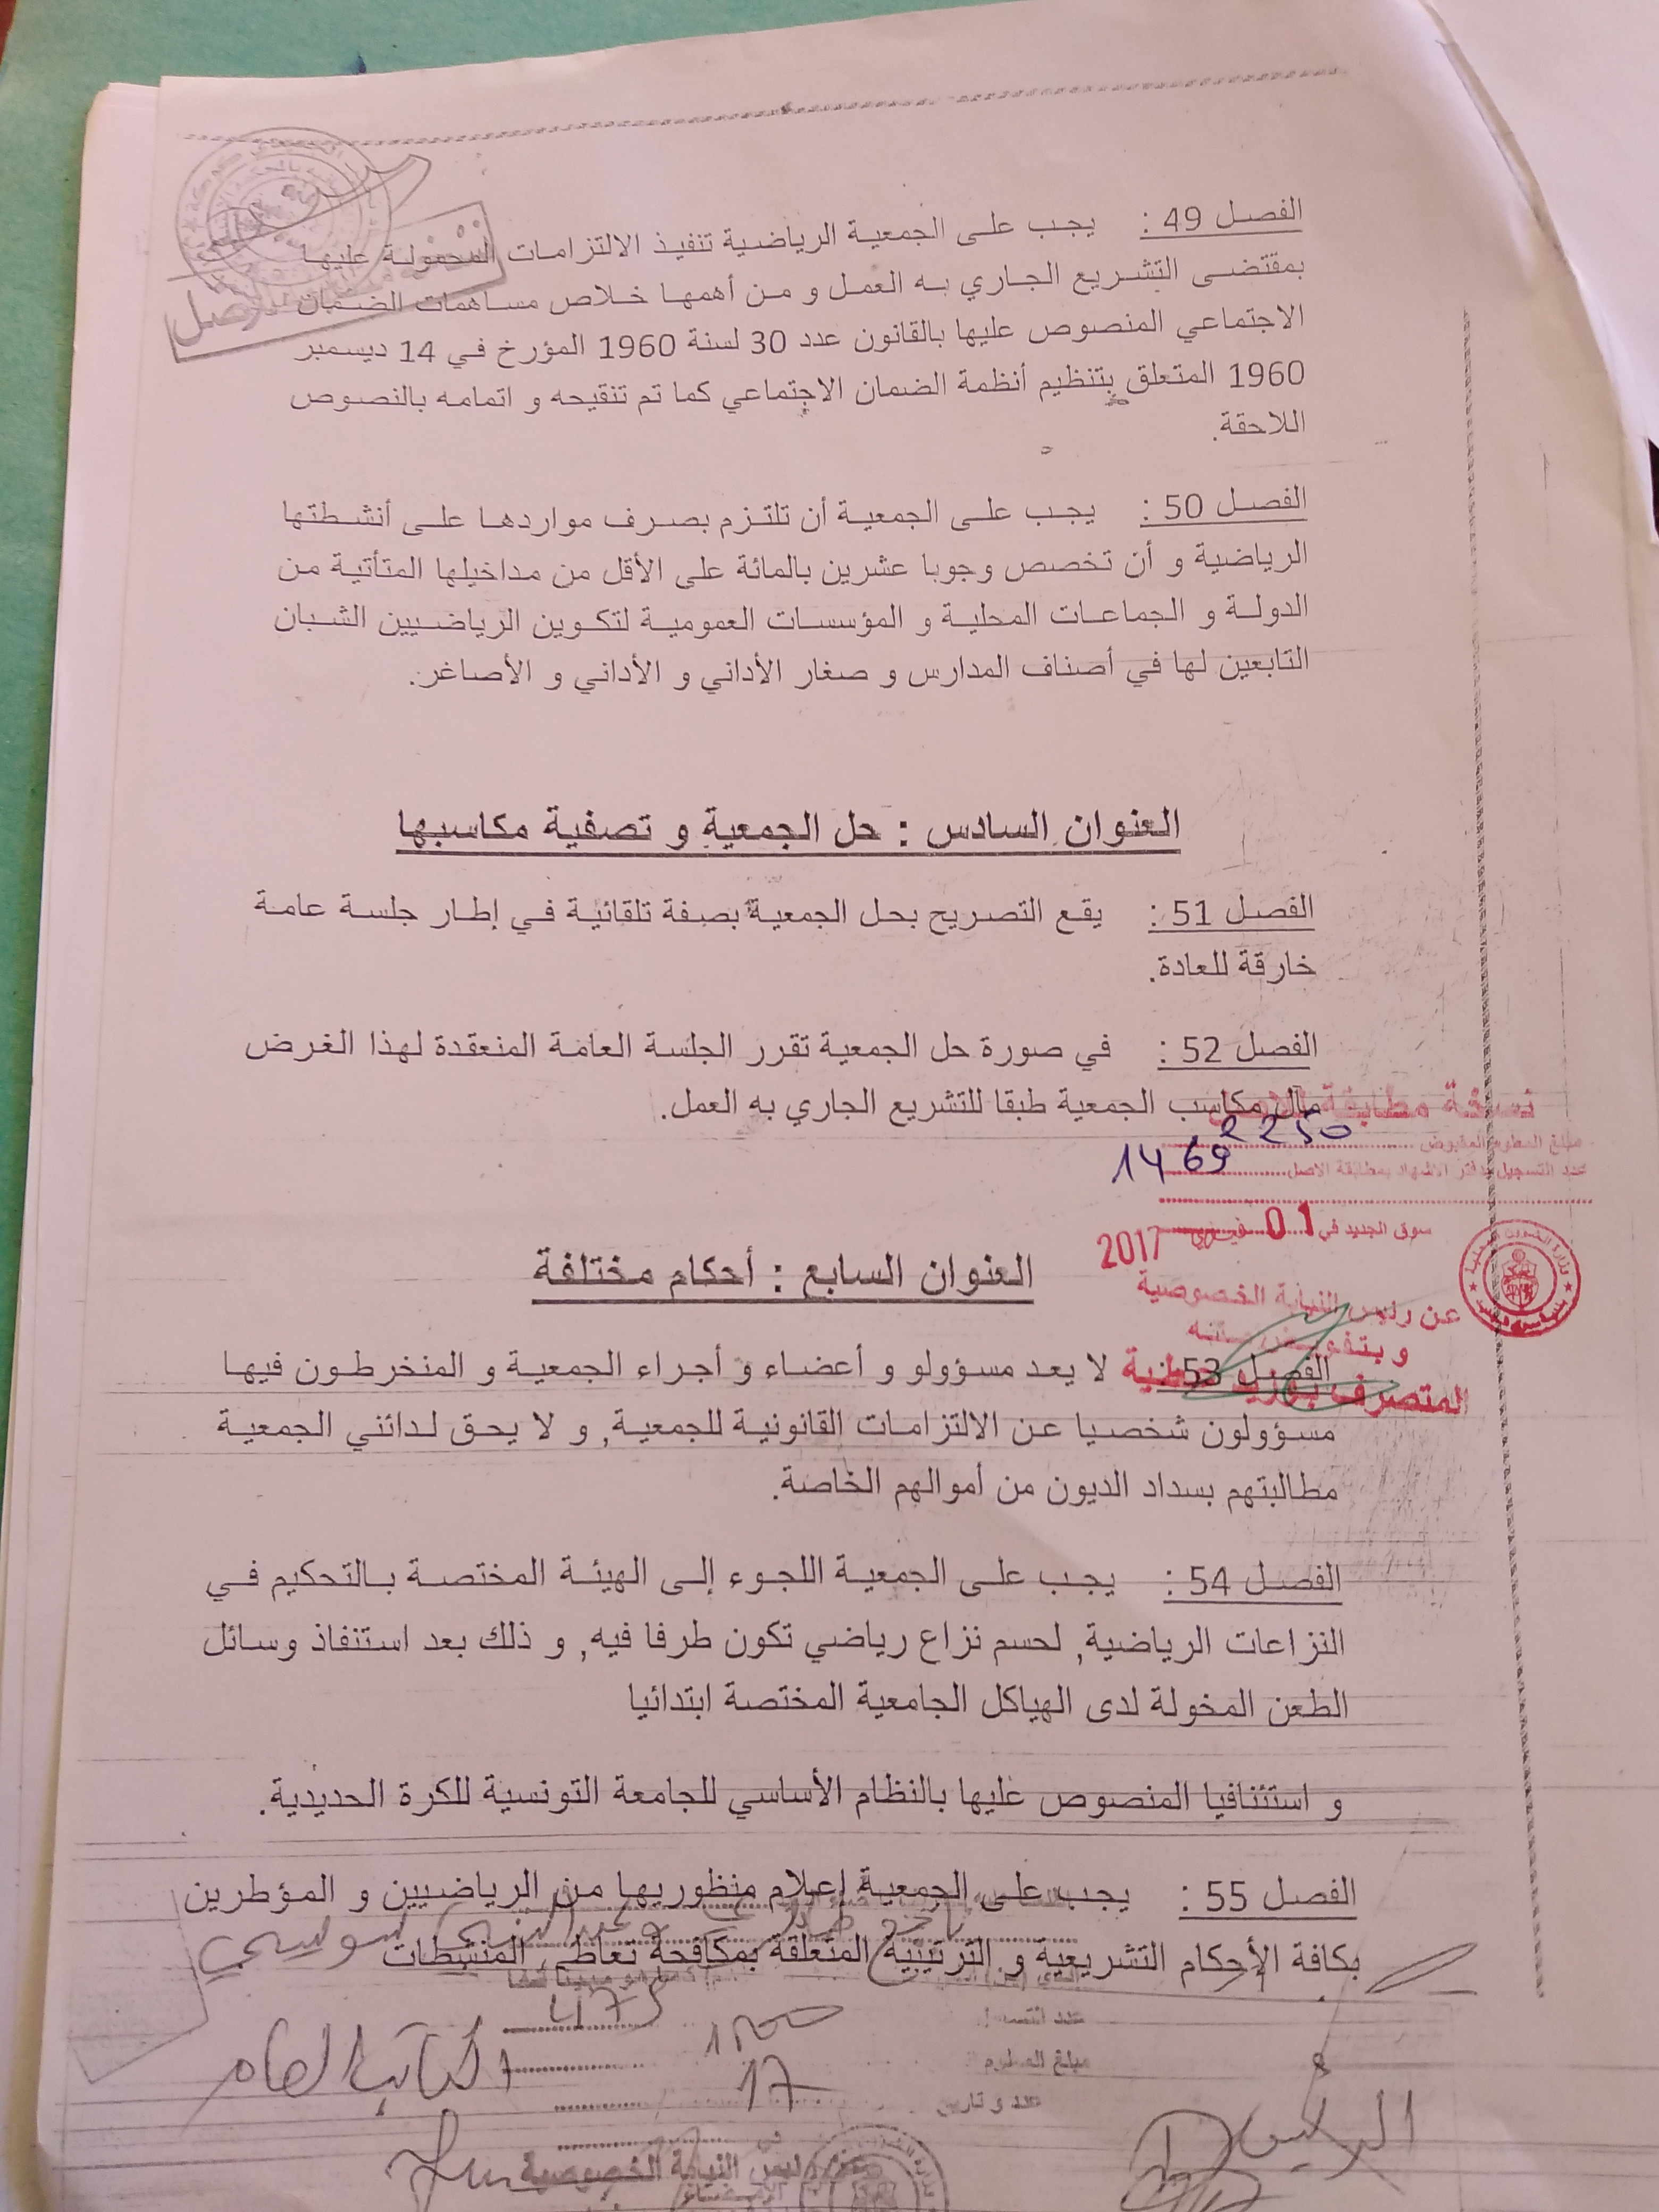 الفصل 49 : يجب على الجمعية الرياضية تنفيذ الالتزامات المحمولة عليها
بمقتضى التشريع الجاري به العمل و من أهمها خلاص مساهمات الضمان
الاجتماعي المنصوص عليها بالقانون عدد 30 لسنة 1960 المؤرخ في 14 ديسمبر
1960 المتعلق بتنظيم أنظمة الضمان الاجتماعي كما تم تنقيحه و اتمامه بالنصوص
اللاحقة.
الفصل 50 : يجب على الجمعية أن تلتزم بصرف مواردها على أنشطتها
الرياضية و أن تخصص وجوبا عشرين بالمائة على الأقل من مداخيلها المتأتية من
الدولة و الجماعات المحلية و المؤسسات العمومية لتكوين الرياضيين الشبان
التابعين لها في أصناف المدارس و صغار الأداني و الأداني و الأصاغر.
العنوان السادس : حل الجمعية و تصفية مكاسبها
الفصل 51 : يقع التصريح بحل الجمعية بصفة تلقائية في إطار جلسة عامة
خارقة للعادة.
الفصل 52 : في صورة حل الجمعية تقرر الجلسة العامة المنعقدة لهذا الغرض
مآل مكاسب الجمعية طبقا للتشريع الجاري به العمل.
نسخة مطابقة للاصل
مبلغ المعلوم المقبوض 2250
عدد التسجيل بدفتر الاشهاد بمطابقة الاصل 1469
سوق الجديد في 01 فيفري 2017
العنوان السابع : أحكام مختلفة
عن رئيس النيابة الخصوصية
و بتفويض منه
المتصرف
الفصل 53 : لا يعد مسؤولو و أعضاء و أجراء الجمعية و المنخرطون فيها
مسؤولون شخصيا عن الالتزامات القانونية للجمعية, و لا يحق لدائني الجمعية
مطالبتهم بسداد الديون من أموالهم الخاصة.
الفصل 54 : يجب على الجمعية اللجوء إلى الهيئة المختصة بالتحكيم في
النزاعات الرياضية, لحسم نزاع رياضي تكون طرفا فيه, و ذلك بعد استنفاذ وسائل
الطعن المخولة لدى الهياكل الجامعية المختصة ابتدائيا
و استئنافيا المنصوص عليها بالنظام الأساسي للجامعة التونسية للكرة الحديدية.
الفصل 55 : يجب على الجمعية إعلام منظوريها من الرياضيين و المؤطرين
بكافة الأحكام التشريعية و الترتيبية المتعلقة بمكافحة تعاطي المنشطات
مبلغ المعلوم
عدد و تاريخ 17
الكاتب العام
الرئيس
رئيس النيابة الخصوصية